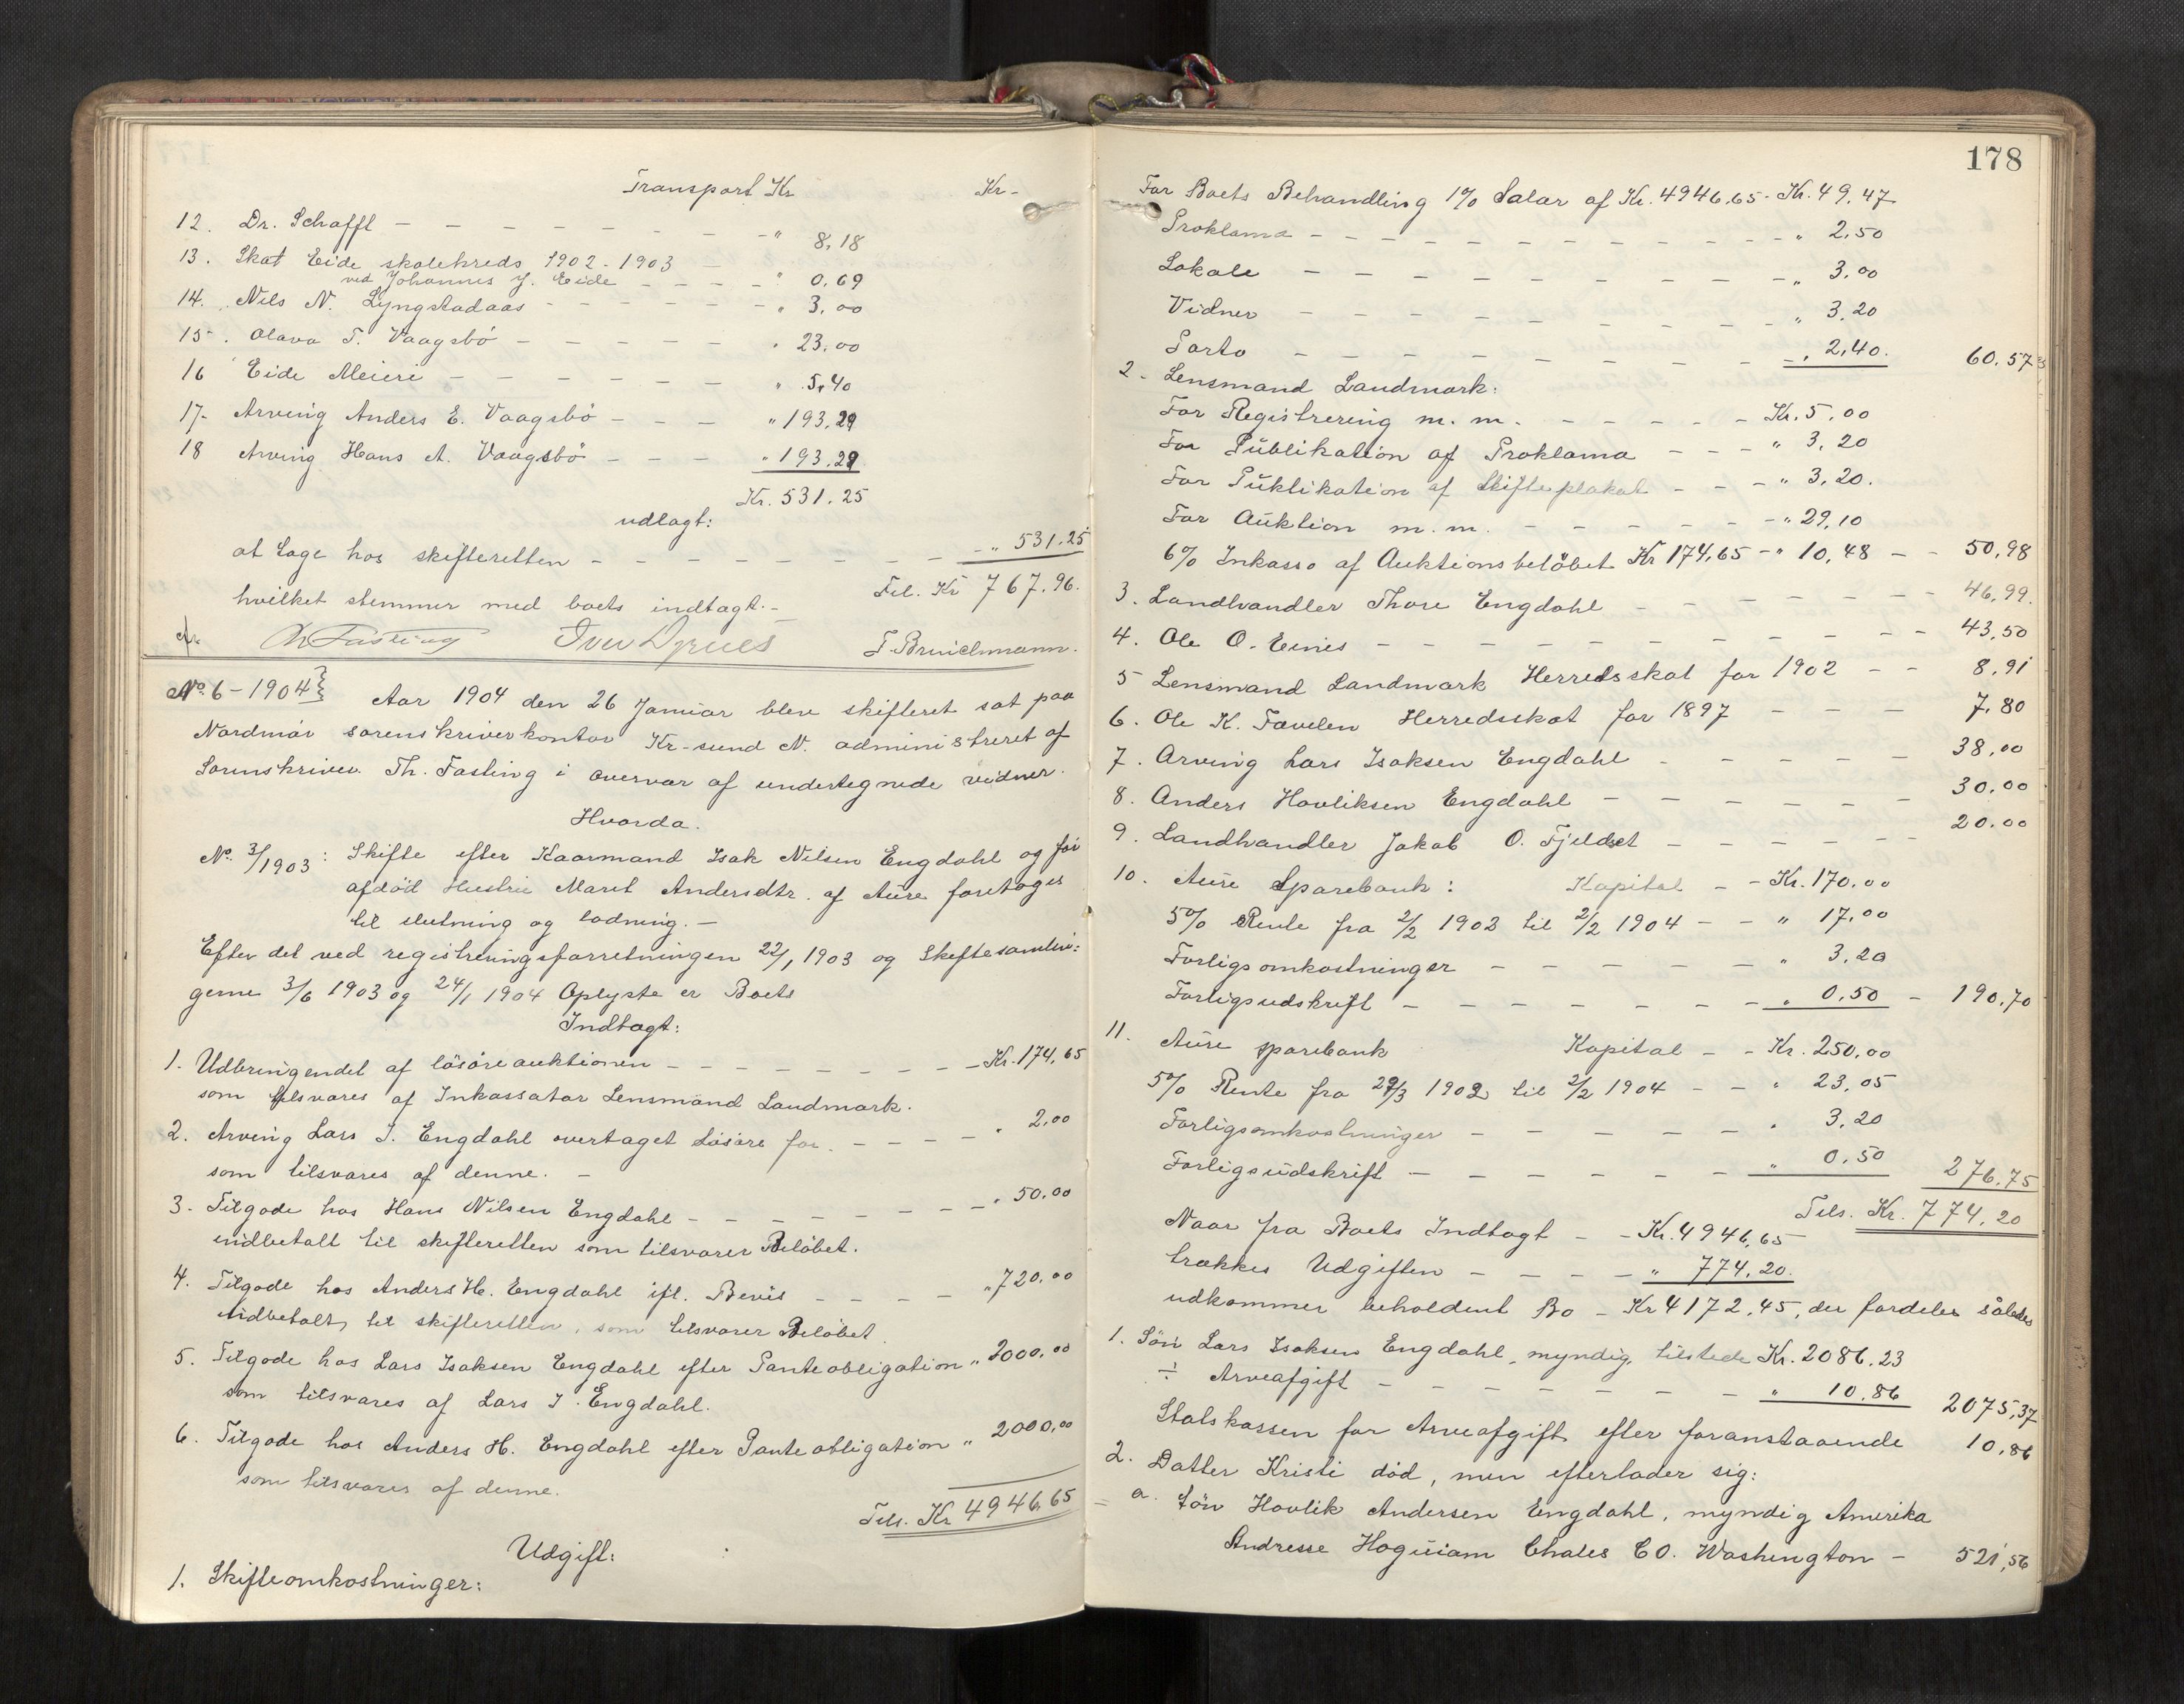 Transport Kr Kr-
12. Dr. Schaffl - - - - - - - - " 8,18
13. Skat Eide skolekreds 1902-1903 -
ved Johannes J. Eide - - - - " 0,69
14. Nils N. Lyngstadaas - - - - - - - " 3,00
15. Olava T. Vaagsbö - - - - - - " 23,00
16 Eide Meieri - - - - - - - " 5,40
17- Arving Anders E. Vaagsbö - - - " 193,29
18 Arving Hans A. Vaagsbö - - - " 193,29
Kr. 531.25
udlagt:
at tage hos skifteretten - - - - - - - - - " 531.25
Til. Kr 767.96.
hvilket stemmer med boets indtægt.-
Th Fasting Iver Dyrnes T. Bruichmann.
No. 6-1904} Aar 1904 den 26 Januar blev skifteret sat paa
Nordmör sorenskriverkontor Kr-sund N. administreret af
Sorenskriver Th. Fasting i overvær af undertegnede vidner.
Hvorda.
No. 3/1903: Skifte efter Kaarmand Isak Nilsen Engdahl og för
afdöd Hustru Marit Andersdtr. af Aure foretages
til slutning og lodning.-
Efter det ved registreringsforretningen 22/1 1903 og Skiftesamlin:
gerne 3/6 1903 og 24/1 1904 Oplyste er Boets
Indtægt:
1. Udbringendet af lösöreauktionen - - - - - - - - - Kr. 174,65
som tilsvares af Inkassator Lensmand Landmark.
2. Arving Lars I. Engdahl overtaget Lösöre for - - - - - " 2,00
som tilsvares af denne. -
3. Tilgode hos Hans Nilsen Engdahl - - - - - - - - " 50,00
indbetalt til skifteretten som tilsvarer Beløbet.
4. Tilgode hos Anders H. Engdahl ifl. Bevis - - - - " 720,00
indbetalt til skifteretten, som tilsvarer Beløbet.
5. Tilgode hos Lars Isaksen Engdahl efter Panteobligation " 2000,00
som tilsvares af Lars I. Engdahl.
6. Tilgode hos Anders H. Engdahl efter Panteobligation " 2000,00
som tilsvares af denne.
Tils. Kr 4946,65
Udgift:
1. Skifteomkostninger:
178
For Boets Behandling 1% Salær af Kr. 4946,65- Kr. 49,47
Proklama - - - - - - - - - - - - - - " 2,50
Lokale - - - - - - - - - - " 3,00
Vidner - - - - - - - - - - " 3,20
Porto - - - - - - - - - - " 2,40. 60,57
2- Lensmand Landmark:
For Registrering m. m. - - - - - Kr. 5,00
For Publikation af Proklama - - - " 3,20
For Püklikation af Skifteplakat - - - " 3,20.
For Auktion m. m. - - - - - - - " 29,10
6% Inkasso af Auktionsbelöbet Kr 174,65 - " 10,48 - - 50,98
3. Landhandler Thore Engdahl - - - - - - - - 46,99.
4. Ole O. Eines - - - - - - - - - - - 43,50
5 Lensmand Landmark Herredsskat for 1902 - - 8,91
6. Ole K. Tavelen Herredsskat for 1897 - - - 7,80
7. Arving Lars Isaksen Engdahl - - - - - 38,00
8. Anders Havliksen Engdahl - - - - - - 30,00
9. Landhandler Jakob O. Fjeldset - - - - - 20,00
10. Aure Sparebank: Kapital - - Kr. 170,00
5% Rente fra 2/2 1902 til 2/2 1904 - - " 17,00
Forligsomkostninger - - - - - - " 3,20
Forligsudskrift - - - - - - - " 0,50 - 190,70
11. Aure sparebank Kapital - - Kr. 250,00
5% Rente fra 29/3 1902 til 2/2 1904 - - " 23,05
Forligsomkostninger - - - - - " 3,20
Forligsudskrift - - - - - - " 0,50 276,75
Tils. Kr. 774,20
Naar fra Boets Indtægt - - Kr. 4946,65
trækkes Udgiften - - - - " 774,20.
udkommer beholdent Bo - Kr 4172,45, der fordeles således
1. Sön Lars Isaksen Engdahl, myndig, tilstede Kr. 2086.23
÷ Arveafgift - - - - - - - " 10,86 2075,37
Statskassen for Arveafgift efter foranstaaende 10,86
2. Datter Kristi död, men efterlader sig:
a. Sön Havlik Andersen Engdahl, myndig Amerika
Andresse Hoguiam Chales CO. Washington - 521,56